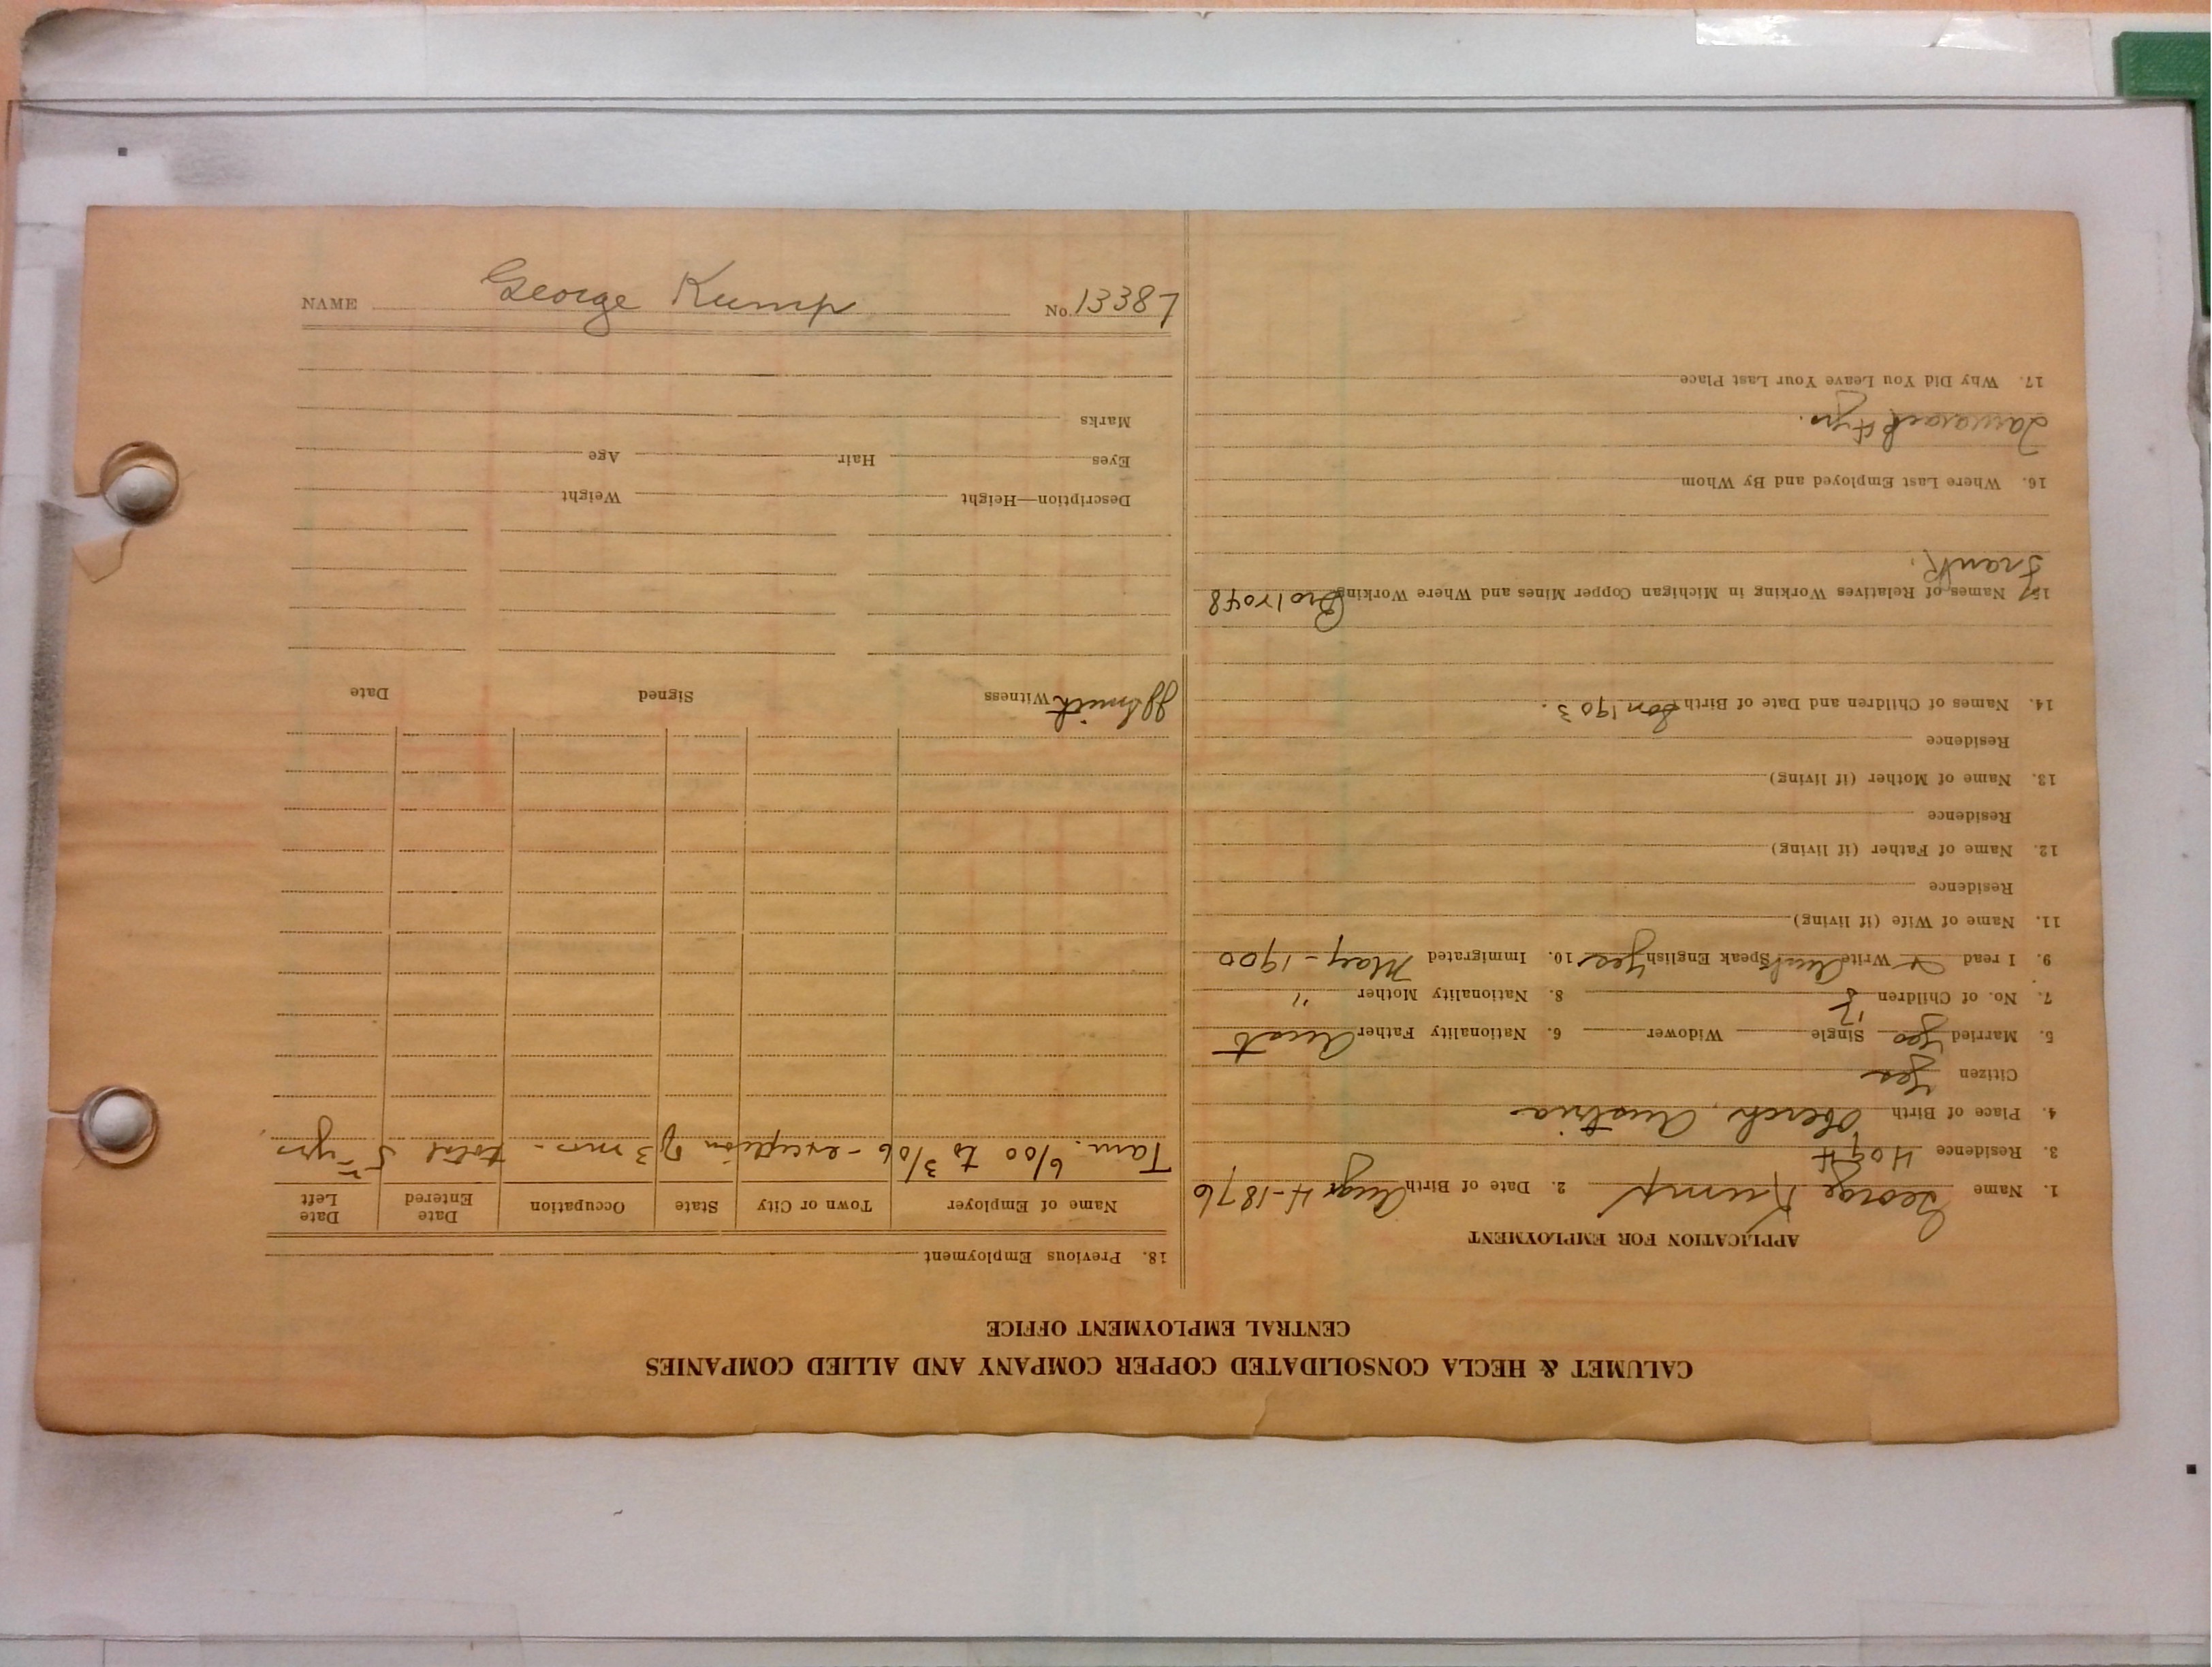 CALUMET & HECLA CONSOLIDATED COPPER COMPANY AND ALLIED COMPANIES
CENTRAL EMPLOYMENT OFFICE
APPLICATION FOR EMPLOYMENT
1. Name George Kump 2. Date of Birth Aug 4-1876
3. Residence 4094
4. Place of Birth Austria
Citizen Yes
5. Married Yes Single Widower 6. Nationality Father Aust
7. No. of Children 5 8. Nationality Mother "
9. I read Write Speak English yes 10. Immigrated May-1900
11. Name of Wife (if living)
Residence
12. Name of Father (if living)
Residence
13. Name of Mother (if living)
Residence
14. Names of Children and Date of Birth Son 1903.
15. Names of Relatives Working in Michigan Copper Mines and Where Working Bro 17048
Frank.
16. Where Last Employed and By Whom
Tamarack 4 yrs.
17. Why Did You Leave Your Last Place
18. Previous Employment
Name of Employer Town or City State Occupation Date Entered Date Left
Tam. 6/00 to 3/06 - exception of 3 mos. total 5 yrs
Witness Signed Date
Smith
Description—Height Weight
Eyes Hair Age
Marks
NAME George Kump No. 13387